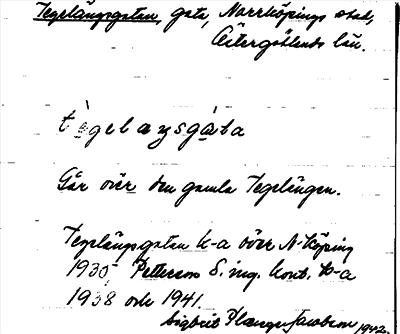 Tegelängsgatan, gata, Norrköpings stad,
Östergötlands län.
tègelaŋsgàta
Går över den gamla Tegelängen.
Tegelängsgatan k-a över N-köping
1930 Petterson S. ing. kont. k-a
1938 och 1941.
Sigbrit Plænge Jacobson 1942.